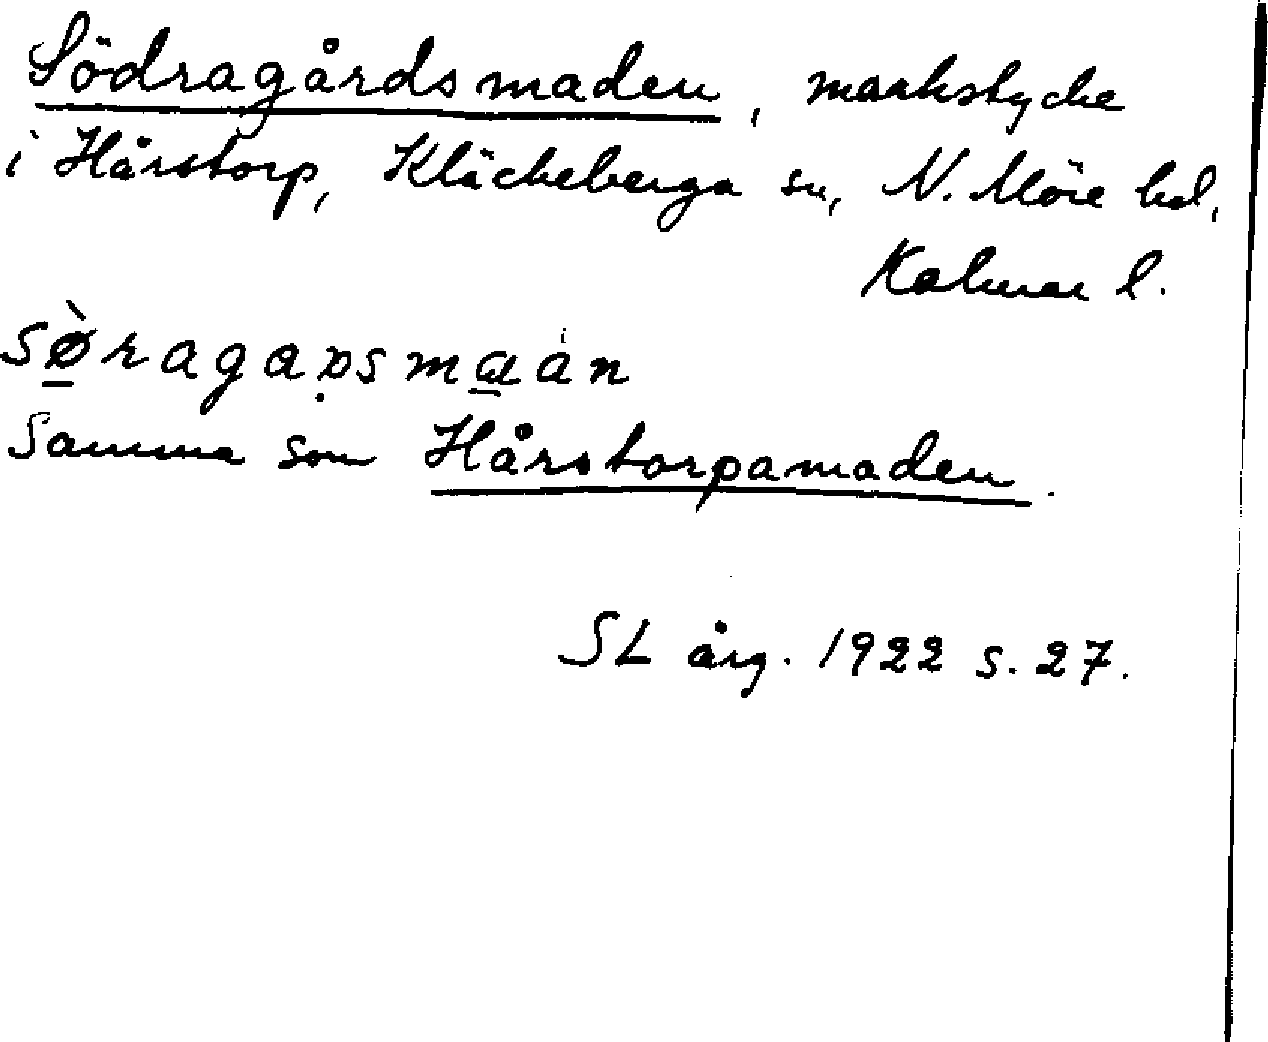 Södragårdsmaden, markstycke
i Hårstorp, Kläckeberga sn, N. Möre hd,
Kalmar l.
sø̀ragaꞩsmaan
Samma som Hårstorpamaden.
SL årg. 1922 s. 27.